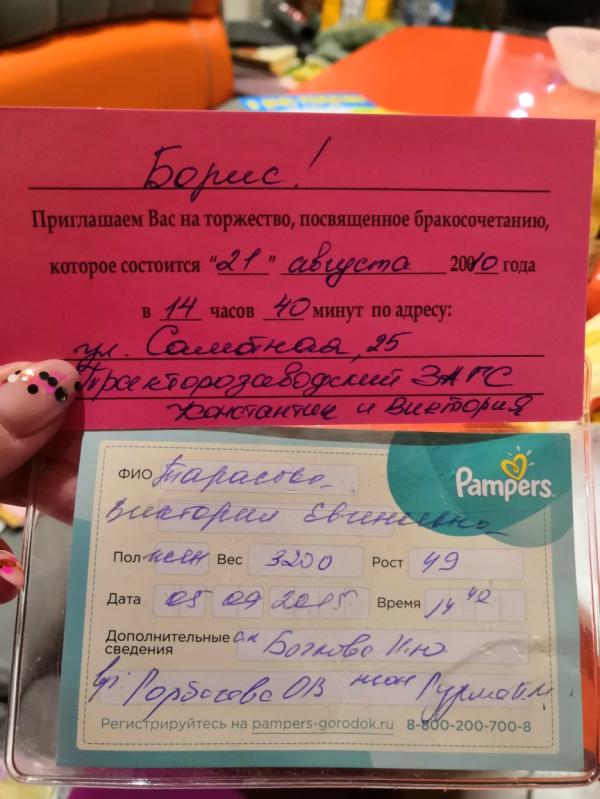 Борис!
Приглашаем Вас на торжество, посвященное бракосочетанию,
которое состоится "21" августа 2010 года
в 14 часов 40 минут по адресу:
ул. Самотная, 25
Тракторозаводский ЗАГС
Константин и Виктория
Pampers
ФИО Тарасова
Виктория Евгеньевна
Пол жен Вес 3200 Рост 49
Дата 05 09 2015 Время 14 40
Дополнительные сведения ак
вр. Горбачева ОВ
Регистрируйтесь на pampers-gorodok.ru 8-800-200-700-8